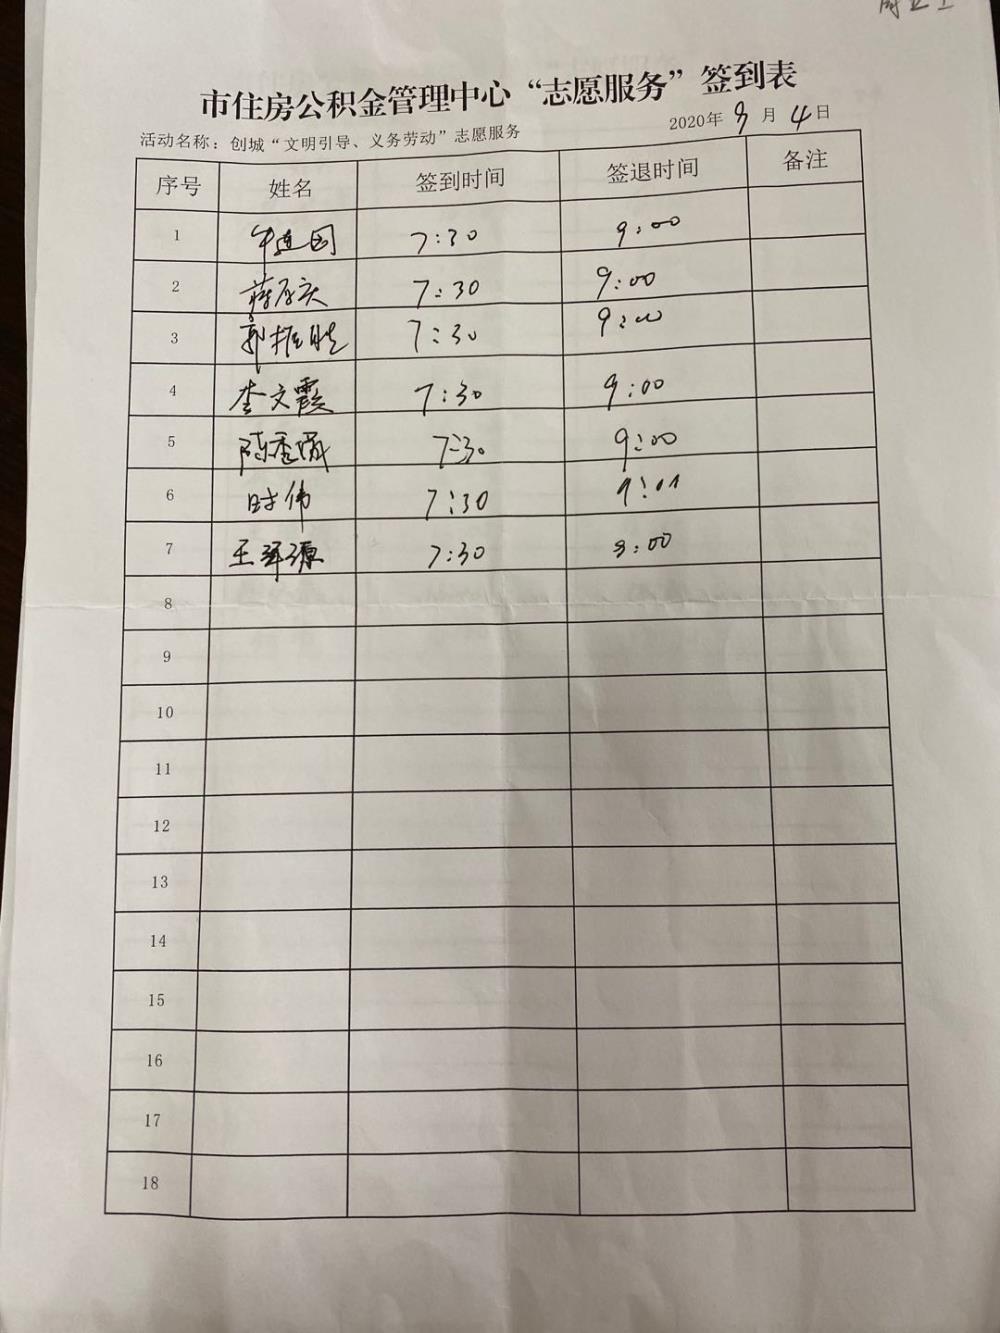 市住房公积金管理中心“志愿服务”签到表
活动名称：创城“文明引导、义务劳动”志愿服务
2020年 9 月 4 日
序号 姓名 签到时间 签退时间 备注
1 国 7:30 9:00
2 蒋 7:30 9:00
3 郭振胜 7:30 9:00
4 李文霞 7:30 9:00
5 陈 7:30 9:00
6 时伟 7:30 9:01
7 王 源 7:30 9:00
8
9
10
11
12
13
14
15
16
17
18